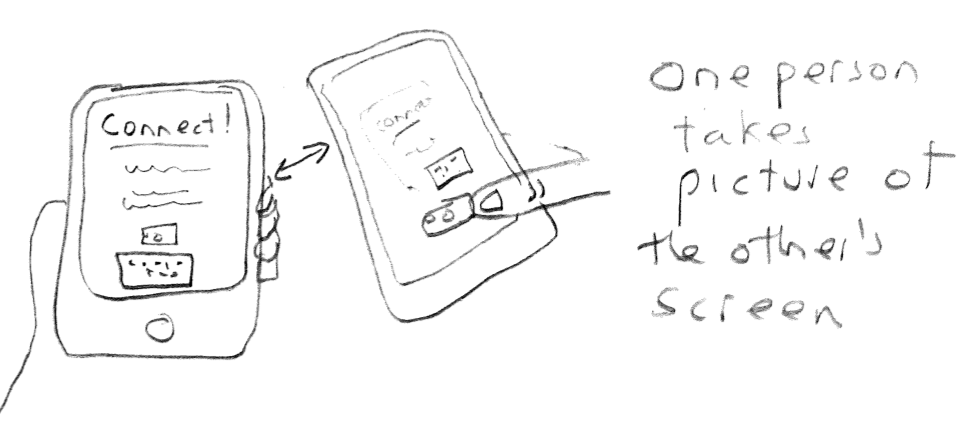 Connect!
Connect
One person
takes
picture of
the other's
screen